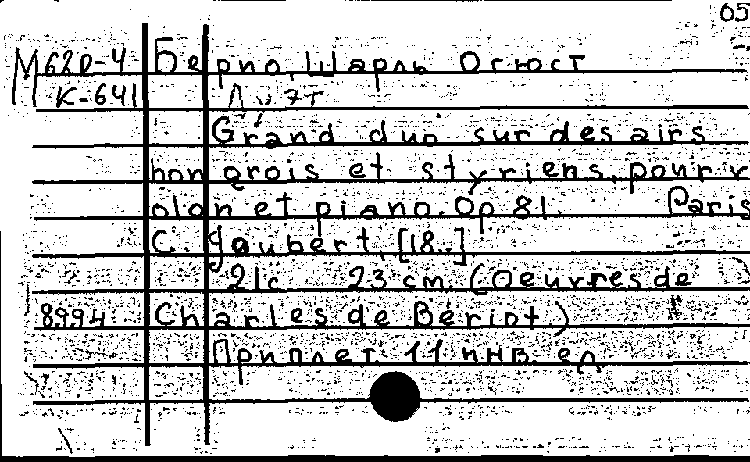 05
М62Р-4 Берио, Шарль Огюст
К-641 Дуэт
Grand duo sur des airs
hongrois et styriens, pour v
olon et piano. Op 81. Paris
C. Jaubert, [18..]
21c 23 cm. (Oeuvres de
8994 Charles de Bériot.)
Приплет. 11 инв. ед